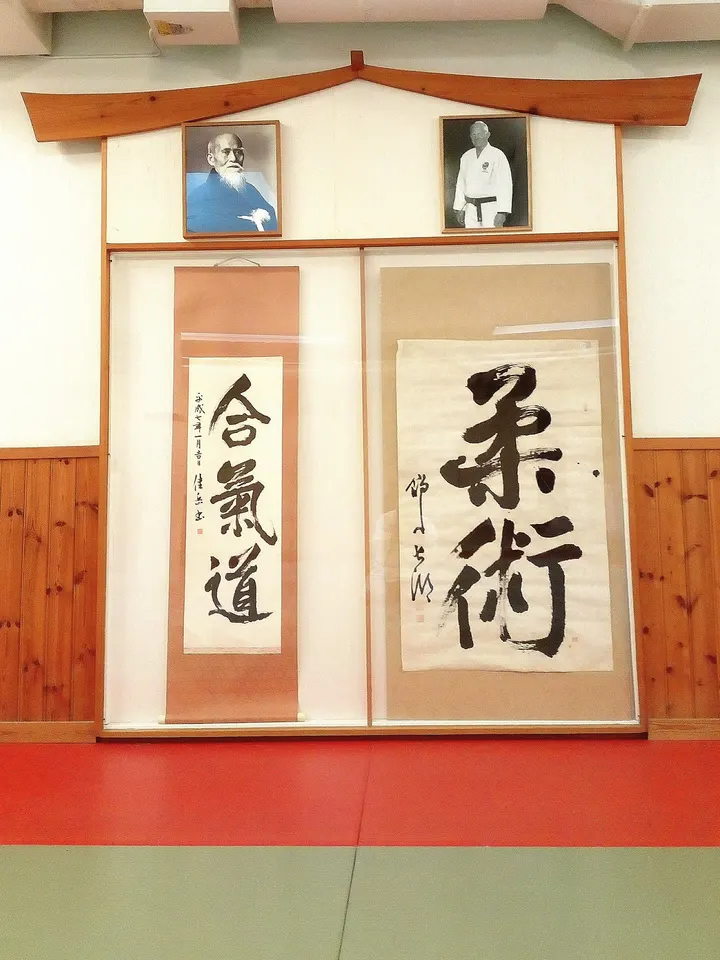 合氣道
平成七年一月吉日
柔術